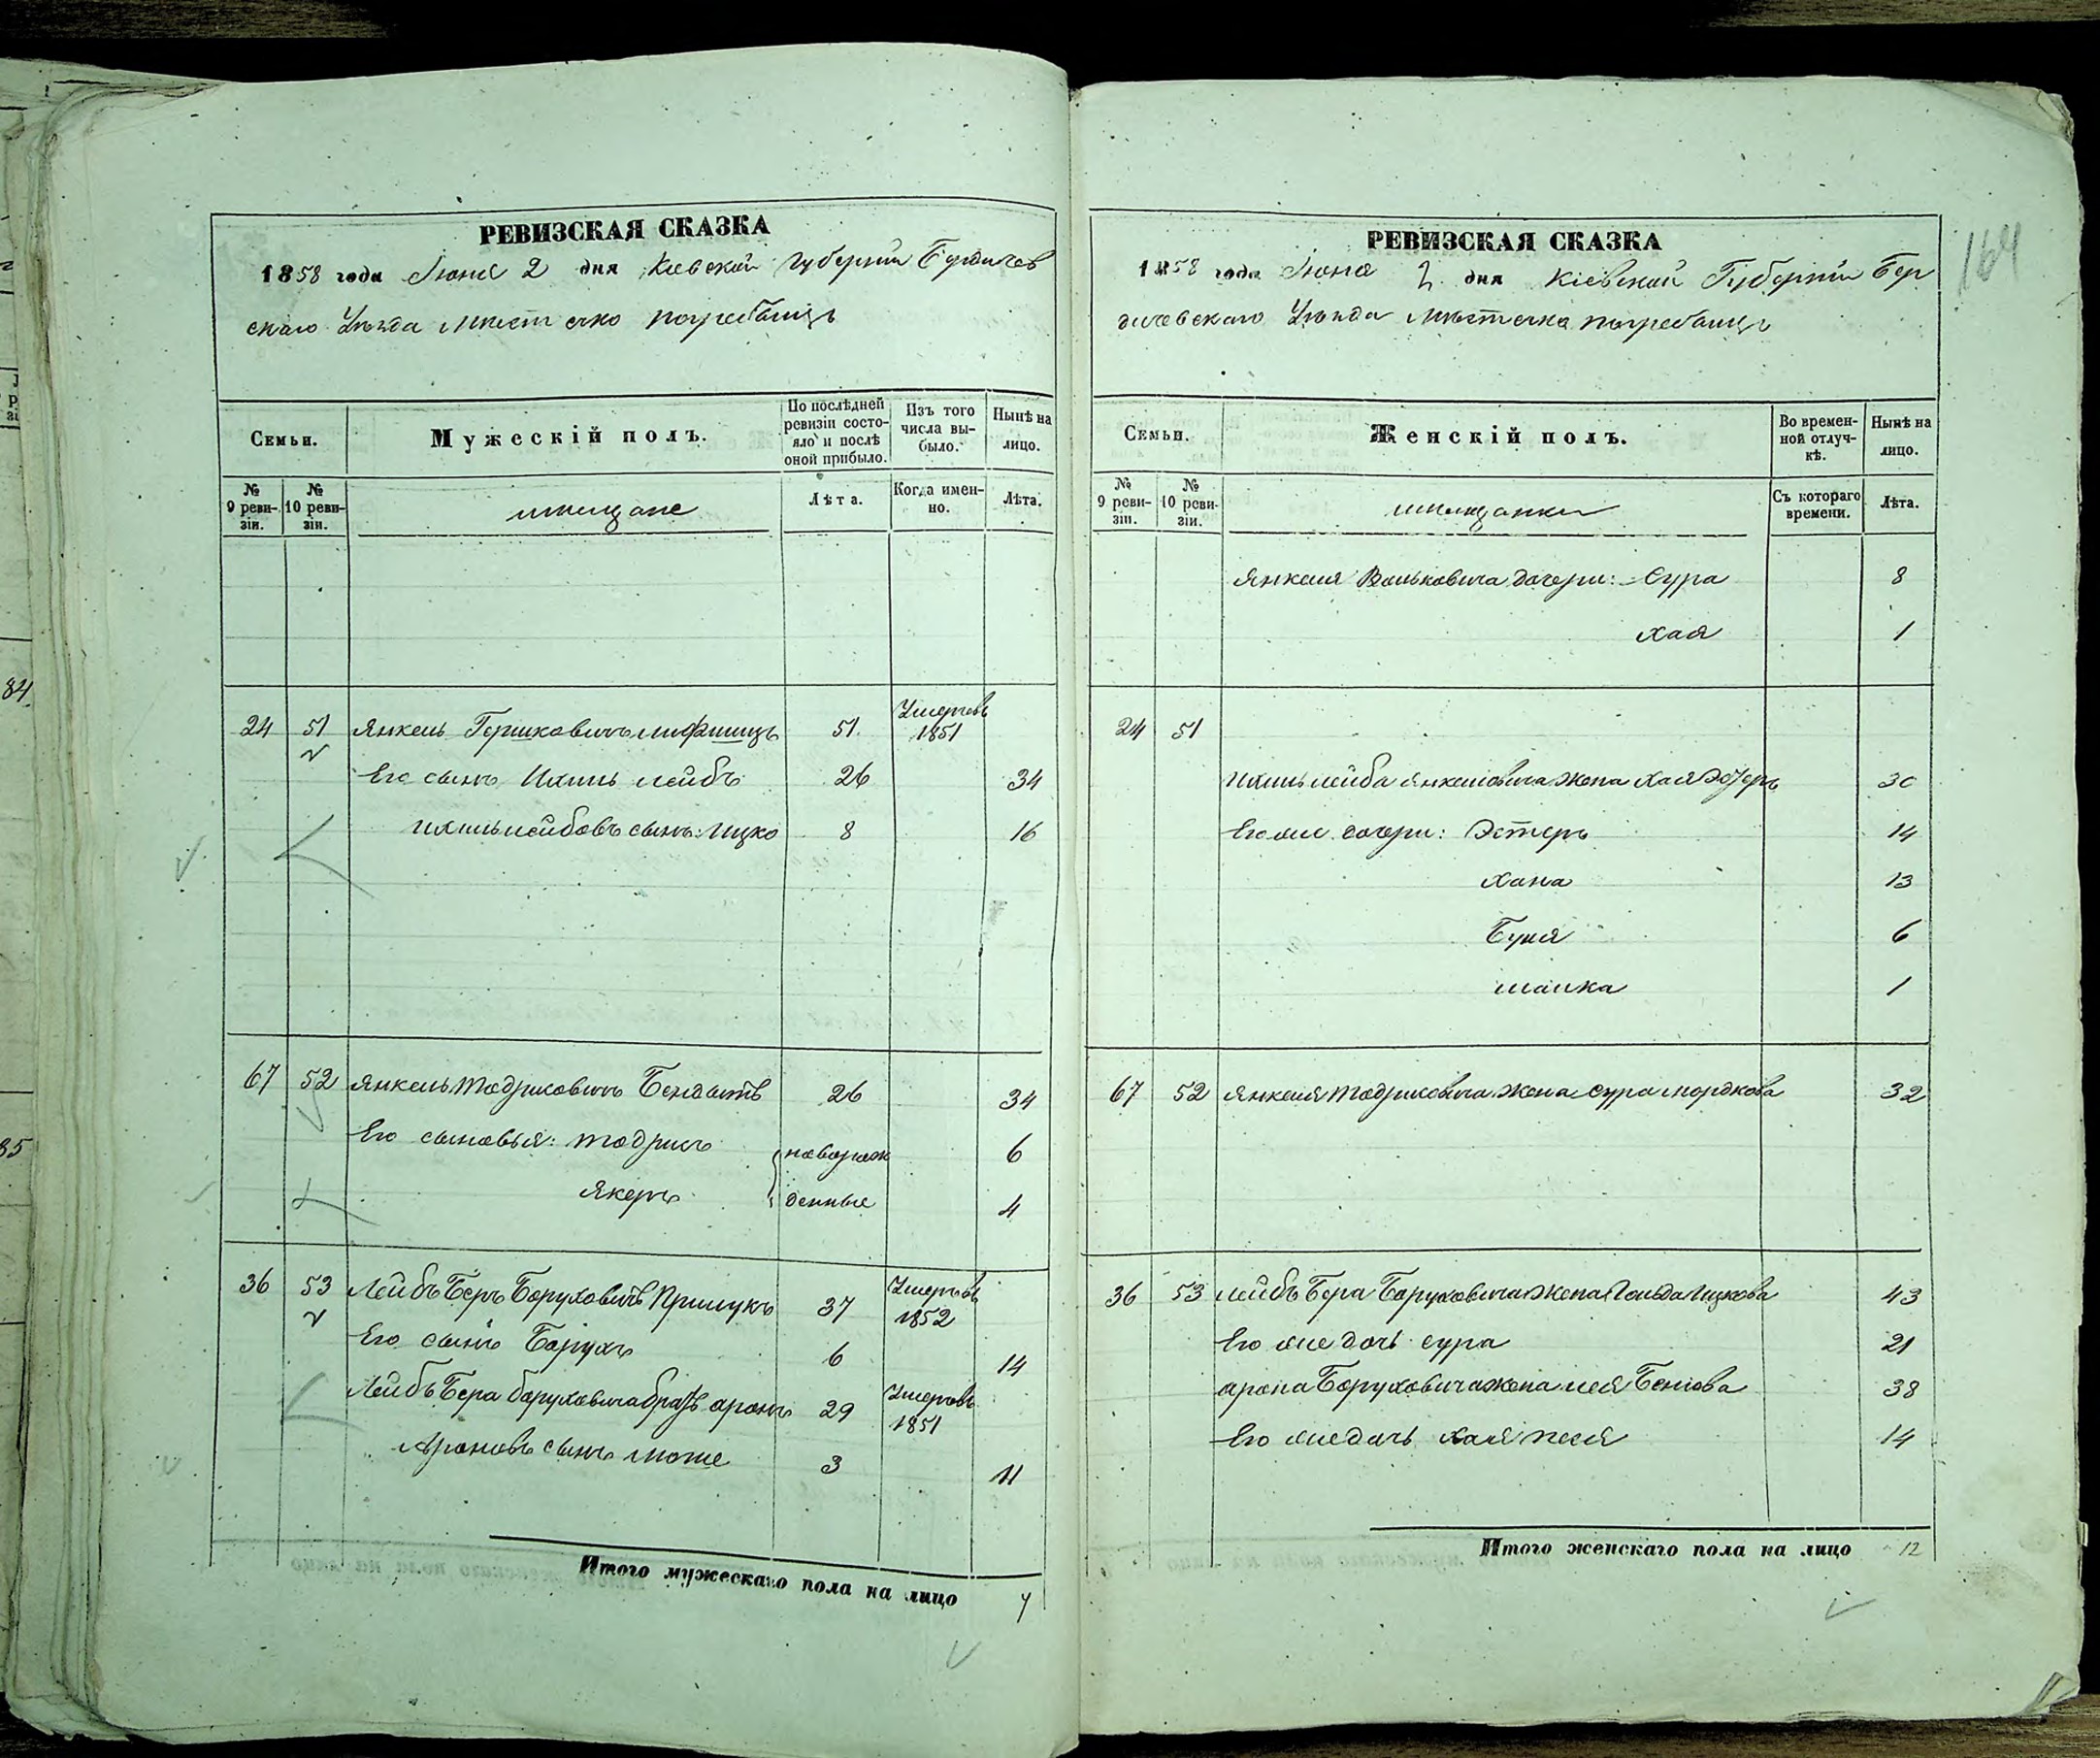 РЕВИЗСКАЯ СКАЗКА
1858 года Июня 2 дня Киевской Губерніи Бердичев
скаго Уѣзда Мѣстечко Погребыщъ
Семьи.
Мужескій полъ.
По послѣдней ревизіи состояло и послѣ оной прибыло.
Изъ того числа выбыло.
Нынѣ на лицо.
№ 9 ревизіи.
№ 10 ревизіи.
мѣщане
Лѣта.
Когда именно.
Лѣта.
24 51 Янкель Гершковичъ Лифшицъ 51 Умеръ въ 1851
Его сынъ Ихиль Лейбъ 26 34
Ихиль Лейбовъ сынъ: Ицко 8 16
67 52 Янкель Тодрисовичъ 26 34
Его сыновья: Тодрисъ новорож 6
Якеръ денные 4
36 53 Лейбъ Беръ Боруховичъ Прилукъ 37 Умеръ въ 1852
Его сынъ Борухъ 6 14
Лейбъ Бера Боруховича братъ Аронъ 29 Умеръ въ 1851
Ароновъ сынъ Моше 3 11
Итого мужескаго пола на лицо 7
164
РЕВИЗСКАЯ СКАЗКА
1858 года Июня 2 дня Кіевской Губерніи Бер
дичевскаго Уѣзда Мѣстечка Погребыщъ
Семьи.
Женскій полъ.
Во временной отлучкѣ.
Нынѣ на лицо.
№ 9 ревизіи.
№ 10 ревизіи.
мѣщанки
Съ котораго времени.
Лѣта.
Янкеля Вольковича дочери: Сура 8
Хая 1
24 51
Ихиль Лейба Янкелевича жена Хая Эстеръ 30
Его же дочери: Эстеръ 14
Хана 13
Буня 6
Малка 1
67 52 Янкеля Тодрисовича жена Сура Мордкова 32
36 53 Лейбъ Бера Боруховича жена Гольда Ицкова 43
Его же дочь Сура 21
Арона Боруховича жена Лея Бенюва 38
Его же дочь Хая Песя 14
Итого женскаго пола на лицо 12
84.
85